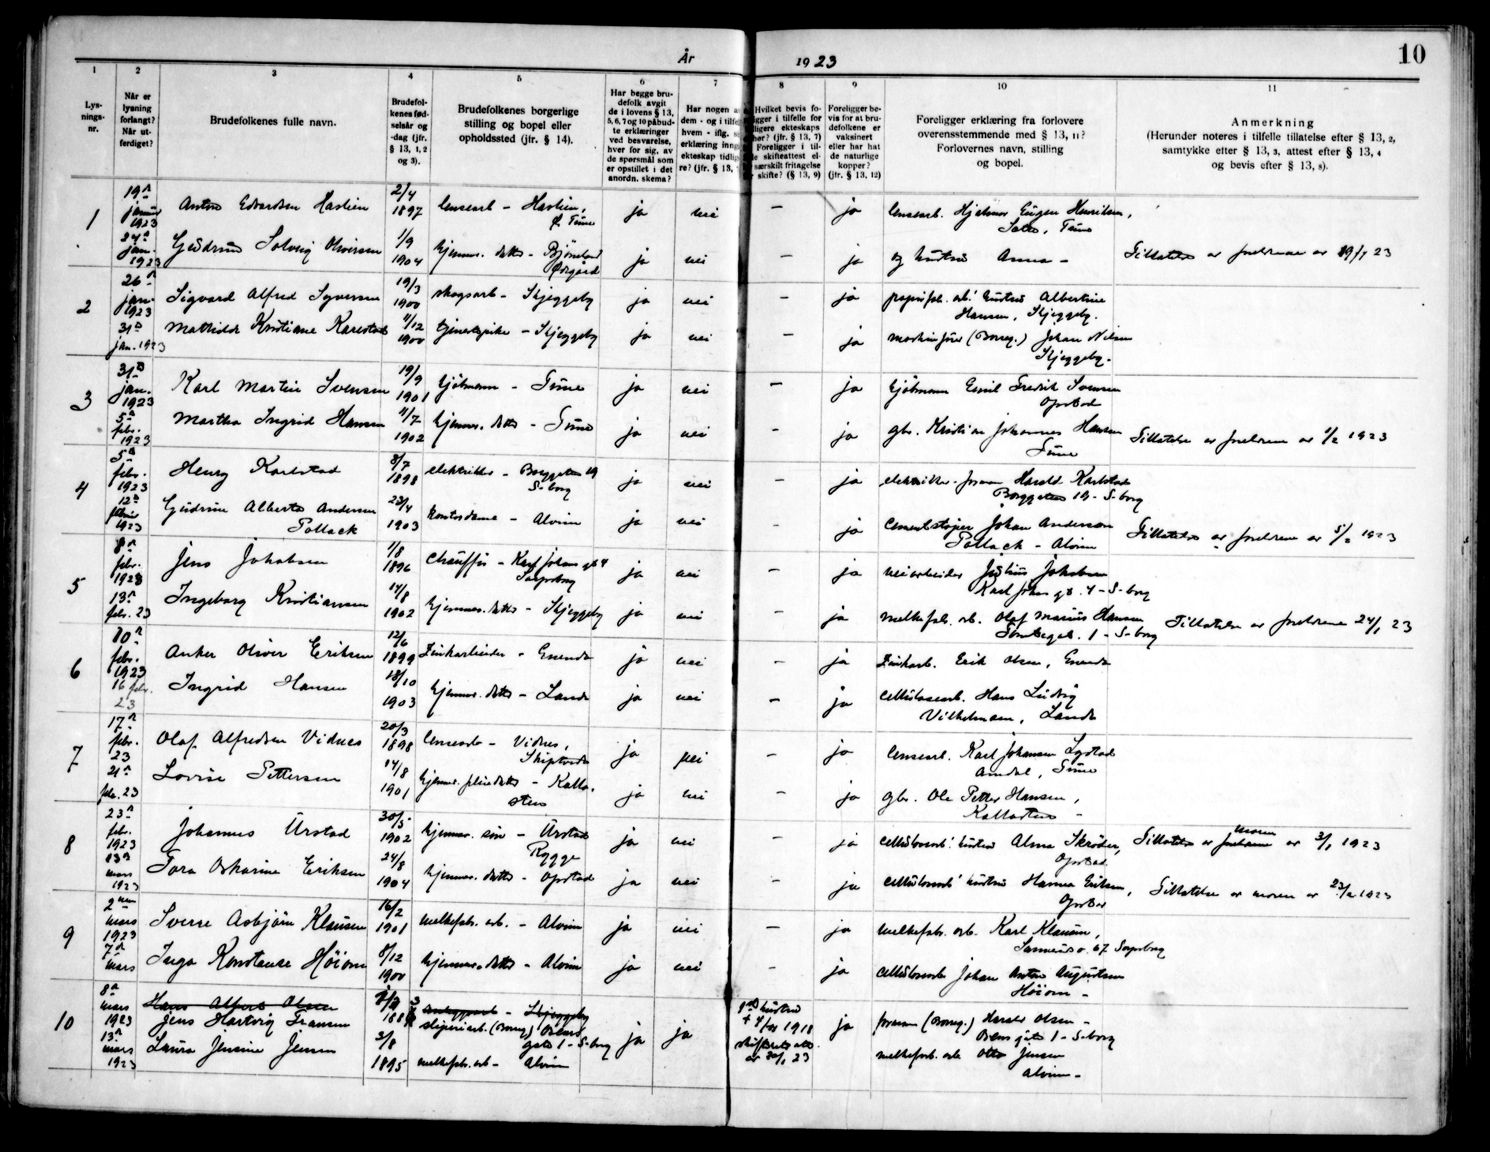 År 1923
10
1
2
3
4
5
6
7
8
9
10
11
Lys-
nings-
nr.
Når er
lysning
forlangt?
Når ut-
ferdiget?
Brudefolkenes fulle navn.
Brudefol-
kenes fød-
selsår og
-dag (jfr.
§ 13, 1, 2
og 3).
Brudefolkenes borgerlige
stilling og bopel eller
opholdssted (jfr. § 14).
Har begge bru-
defolk avgit
de i lovens § 13,
5, 6, 7 og 10 påbud-
te erklæringer
ved besvarelse,
hver for sig, av
de spørsmål som
er opstillet i det
anordn. skema?
Har nogen av
dem - og i tilfel
hvem - iflg. si
erklæring inngå
ekteskap tidlig
re? (jfr. § 13,
Hvilket bevis fo-
ligger i tilfelle for
ligere ekteskaps
hør? (jfr. § 13, 7)
Foreligger i til-
le skifteattest el
særskilt fritagelse
skifte? (§ 13, 9)
Foreligger be-
vis for at bru-
defolkene er
vaksinert
eller har hat
de naturlige
kopper?
(jfr. § 13, 12)
Foreligger erklæring fra forlovere
overensstemmende med § 13, 11?
Forlovernes navn, stilling
og bopel.
Anmerkning
(Herunder noteres i tilfelle tillatelse efter § 13, 2,
samtykke efter § 13, 3, attest efter § 13, 4
og bevis efter § 13, 8).
1
19n
januar
1923
Anton Edvardsen Haslien
2/4
1897
lensearb - Haslien,
Ø. Tune
ja nei - ja
lensearb. Hjalmar Eugen Henriksen,
Tune
24n
jan.
1923
Gudrun Solveig Oliversen
1/9
1904
hjemmev. datter - Bjørneland
ja nei - ja
og hustru Anna -
Tillatelse er foreldrene av 19/1 23
2
26n
jan.
1923
Sigvard Alfred Syversen
19/3
1900
skogsarb - Skjeggeby
ja nei - ja
papirfab. arb.' hustru Albertine
Hansen, Skjeggeby.
31n
jan. 1923
Mathilde Kristiane Karlstad
11/12
1900
tjenestepike - Skjeggeby
ja nei - ja
maskinfører (Borreg.) Johan Nilsen
Skjeggeby.
3
31n
jan.
1923
Karl Martin Svensen
19/9
1901
Sjømann - Tune
ja nei - ja
Sjømann Emil Fredrik Svensen
Opstad
5n
febr.
1923
Martha Ingrid Hansen
11/7
1902
hjemmev. datter - Tune
ja nei - ja
gbr. Kristian Johannes Hansen
Tune
Tillatelse er foreldrene av 1/2 1923
4
5n
febr.
1923
Henry Karlstad
8/7
1898
elektriker - Borggaten 19
S-borg
ja nei - ja
elektriker-forman Harald Karlstad
Borggaten 19 - S-borg
12n
1923
Gudrun Alberte Andersen
Pollack
23/4
1903
kontordame - Alvim
ja nei - ja
Cementstøper Johan Andersen
Pollack - Alvim
Tillatelse er foreldrene av 5/2 1923
5
8n
febr.
1923
Jens Jakobsen
1/8
1896
Chauffør - Karl Johans gt 4
Sarpsborg
ja nei - ja
veiarbeider Julius Jakobsen
Karl Johans gt. 4 - S-borg
13n
febr. 23
Ingeborg Kristiansen
14/8
1902
hjemmev. datter - Skjeggeby
ja nei - ja
melkefab. arb. Olaf Marius Hansen
1 - S-borg
Tillatelse er foreldrene 24/1 23
6
10n
febr.
1923
Anker Oliver Eriksen
12/6
1899
Zinkarbeider - Grenda
ja nei - ja
Zinkarb. Erik Olsen, Grenda
16 febr.
23
Ingrid Hansen
18/10
1903
hjemmev. datter - Lande
ja nei - ja
cellulosearb. Hans Ludvig
Vilhelmsen, Lande
7
17n
febr.
23
Olaf Alfredsen Vidnes
20/3
1898
lensearb - Vidnes,
Skiptvedt
ja nei - ja
lensearb. Karl Johansen Lystad
Tune
21n
feb. 23
Lovise Pettersen
14/8
1901
hjemmev. pleiedatter - Kalla-
sten
ja nei - ja
gbr. Ole Petter Hansen,
Kallasten -
8
23n
febr.
1923
Johannes Årstad
30/5
1902
hjemmev. søn - Årstad
Rygge
ja nei - ja
cellulosearb.' hustru Alma Skrøder,
Opstad
Tillatelse er foreldrene moren av 3/1 1923
13n
mars
1923
Tora Oskarine Eriksen
24/8
1904
hjemmev. datter - Opstad
ja nei - ja
cellulosearb' hustru Hanna Eriksen,
Opstad
Tillatelse av moren av 23/2 1923
9
2nen
mars
1923
Sverre Asbjørn Klausen
16/2
1901
melkefabr. arb. - Alvim
ja nei - ja
melkefabr. arb. Karl Klausen,
67 Sarpsborg
7n
mars
Inga Konstanse Høiom
8/12
1900
hjemmev. datter - Alvim
ja nei - ja
cellulosearb Johan Anton Augustsen
Høiom -
10
8n
mars
1923
Hans Alfred Olsen
Jens Hartvig Fransen
188
- Skjeggeby
sliperiarb. (Borreg.)
gate 1 - S-borg
ja ja
hustru
1918
23
ja
forman (Borreg.) Olsen -
gate 1 - S-borg
13n
mars
1923
Laura Jensine Jensen
3/8
1895
melkefab. arb - Alvim
melkefab. arb Otto Jensen
Alvim -